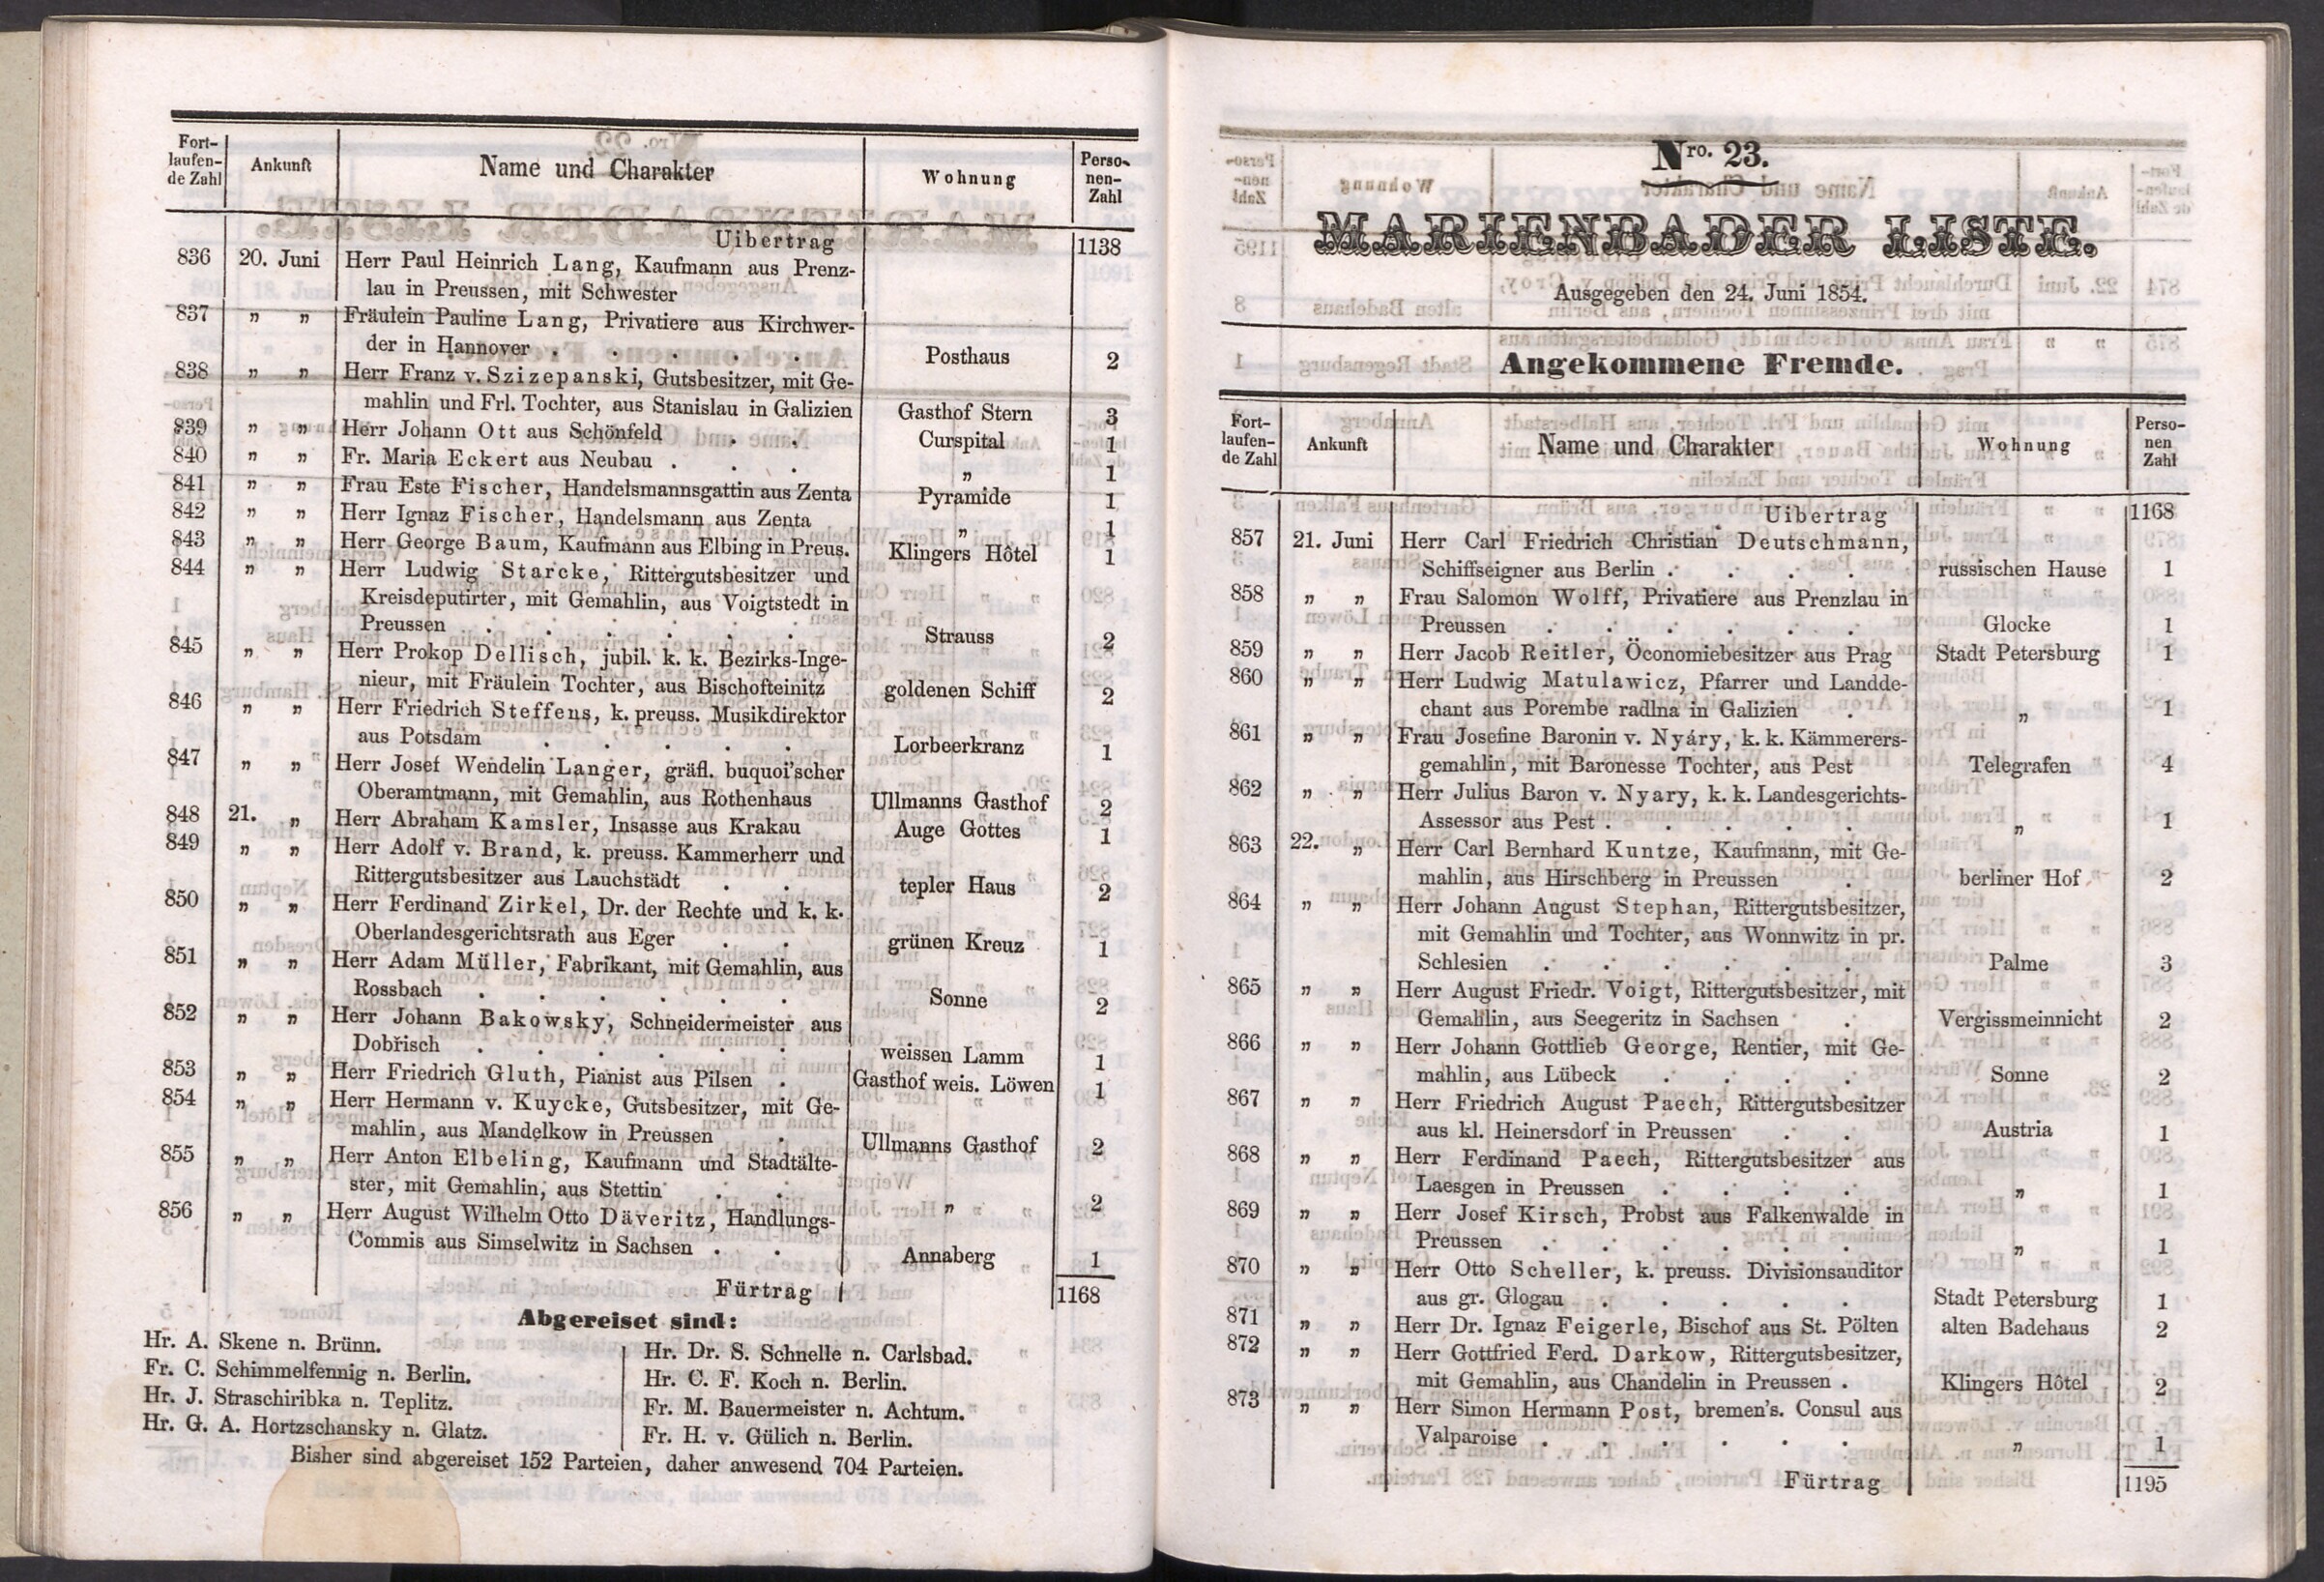 Fort-
laufen-
de Zahl
Ankunft
Name und Charakter
Wohnung
Perso-
nen-
Zahl
Uibertrag 1138
836 20. Juni Herr Paul Heinrich Lang, Kaufmann aus Prenz-
lau in Preussen, mit Schwester
837 „ „ Fräulein Pauline Lang, Privatiere aus Kirchwer-
der in Hannover . . . . . Posthaus 2
838 „ „ Herr Franz v. Szizepanski, Gutsbesitzer, mit Ge-
mahlin und Frl. Tochter, aus Stanislau in Galizien Gasthof Stern 3
839 „ „ Herr Johann Ott aus Schönfeld . . Curspital 1
840 „ „ Fr. Maria Eckert aus Neubau . . . „ 1
841 „ „ Frau Este Fischer, Handelsmannsgattin aus Zenta Pyramide 1
842 „ „ Herr Ignaz Fischer, Handelsmann aus Zenta „ 1
843 „ „ Herr George Baum, Kaufmann aus Elbing in Preus. Klingers Hôtel 1
844 „ „ Herr Ludwig Starcke, Rittergutsbesitzer und
Kreisdeputirter, mit Gemahlin, aus Voigtstedt in
Preussen . . . . . . Strauss 2
845 „ „ Herr Prokop Dellisch, jubil. k. k. Bezirks-Inge-
nieur, mit Fräulein Tochter, aus Bischofteinitz goldenen Schiff 2
846 „ „ Herr Friedrich Steffens, k. preuss. Musikdirektor
aus Potsdam . . . . . Lorbeerkranz 1
847 „ „ Herr Josef Wendelin Langer, gräfl. buquoi'scher
Oberamtmann, mit Gemahlin, aus Rothenhaus Ullmanns Gasthof 2
848 21. „ Herr Abraham Kamsler, Insasse aus Krakau Auge Gottes 1
849 „ „ Herr Adolf v. Brand, k. preuss. Kammerherr und
Rittergutsbesitzer aus Lauchstädt . . tepler Haus 2
850 „ „ Herr Ferdinand Zirkel, Dr. der Rechte und k. k.
Oberlandesgerichtsrath aus Eger . . grünen Kreuz 1
851 „ „ Herr Adam Müller, Fabrikant, mit Gemahlin, aus
Rossbach . . . . . . Sonne 2
852 „ „ Herr Johann Bakowsky, Schneidermeister aus
Dobřisch . . . . . . weissen Lamm 1
853 „ „ Herr Friedrich Gluth, Pianist aus Pilsen . Gasthof weis. Löwen 1
854 „ „ Herr Hermann v. Kuycke, Gutsbesitzer, mit Ge-
mahlin, aus Mandelkow in Preussen . Ullmanns Gasthof 2
855 „ „ Herr Anton Elbeling, Kaufmann und Stadtälte-
ster, mit Gemahlin, aus Stettin . . „ 2
856 „ „ Herr August Wilhelm Otto Däveritz, Handlungs-
Commis aus Simselwitz in Sachsen . . Annaberg 1
Fürtrag 1168
Abgereiset sind:
Hr. A. Skene n. Brünn.
Fr. C. Schimmelfennig n. Berlin.
Hr. J. Straschiribka n. Teplitz.
Hr. G. A. Hortzschansky n. Glatz.
Hr. Dr. S. Schnelle n. Carlsbad.
Hr. C. F. Koch n. Berlin.
Fr. M. Bauermeister n. Achtum.
Fr. H. v. Gülich n. Berlin.
Bisher sind abgereiset 152 Parteien, daher anwesend 704 Parteien.
Nro. 23.
MARIENBADER LISTE.
Ausgegeben den 24. Juni 1854.
Angekommene Fremde.
Fort-
laufen-
de Zahl
Ankunft
Name und Charakter
Wohnung
Perso-
nen
Zahl
Uibertrag 1168
857 21. Juni Herr Carl Friedrich Christian Deutschmann,
Schiffseigner aus Berlin . . . . russischen Hause 1
858 „ „ Frau Salomon Wolff, Privatiere aus Prenzlau in
Preussen . . . . . . Glocke 1
859 „ „ Herr Jacob Reitler, Öconomiebesitzer aus Prag Stadt Petersburg 1
860 „ „ Herr Ludwig Matulawicz, Pfarrer und Landde-
chant aus Porembe radlna in Galizien . „ 1
861 „ „ Frau Josefine Baronin v. Nyáry, k. k. Kämmerers-
gemahlin, mit Baronesse Tochter, aus Pest Telegrafen 4
862 „ „ Herr Julius Baron v. Nyary, k. k. Landesgerichts-
Assessor aus Pest . . . . . „ 1
863 22. „ Herr Carl Bernhard Kuntze, Kaufmann, mit Ge-
mahlin, aus Hirschberg in Preussen . berliner Hof 2
864 „ „ Herr Johann August Stephan, Rittergutsbesitzer,
mit Gemahlin und Tochter, aus Wonnwitz in pr.
Schlesien . . . . . . Palme 3
865 „ „ Herr August Friedr. Voigt, Rittergutsbesitzer, mit
Gemahlin, aus Seegeritz in Sachsen . Vergissmeinnicht 2
866 „ „ Herr Johann Gottlieb George, Rentier, mit Ge-
mahlin, aus Lübeck . . . . Sonne 2
867 „ „ Herr Friedrich August Paech, Rittergutsbesitzer
aus kl. Heinersdorf in Preussen . . Austria 1
868 „ „ Herr Ferdinand Paech, Rittergutsbesitzer aus
Laesgen in Preussen . . . . „ 1
869 „ „ Herr Josef Kirsch, Probst aus Falkenwalde in
Preussen . . . . . . „ 1
870 „ „ Herr Otto Scheller, k. preuss. Divisionsauditor
aus gr. Glogau . . . . . Stadt Petersburg 1
871 „ „ Herr Dr. Ignaz Feigerle, Bischof aus St. Pölten alten Badehaus 2
872 „ „ Herr Gottfried Ferd. Darkow, Rittergutsbesitzer,
mit Gemahlin, aus Chandelin in Preussen . Klingers Hôtel 2
873 „ „ Herr Simon Hermann Post, bremen's. Consul aus
Valparoise . . . . . . „ 1
Fürtrag 1195